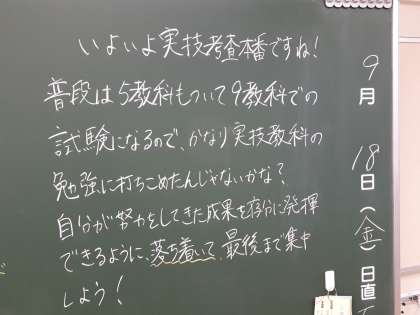 いよいよ実技考査本番ですね！
普段は5教科もついて9教科での
試験になるので、かなり実技教科の
勉強に打ちこめたんじゃないかな？
自分が努力をしてきた成果を存分に発揮
できるように、落ち着いて、最後まで集中
しよう！
9月18日（金）日直